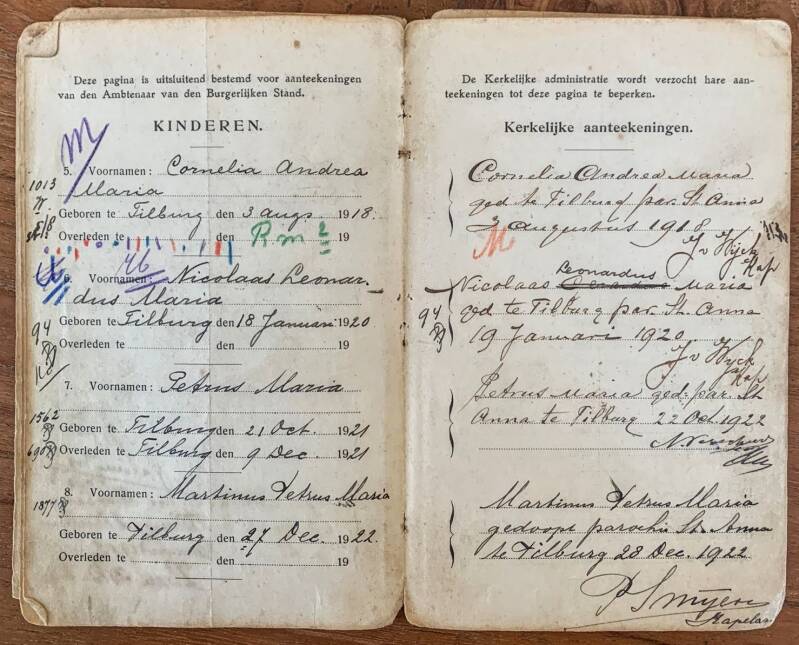 Deze pagina is uitsluitend bestemd voor aanteekeningen
van den Ambtenaar van den Burgerlijken Stand.
KINDEREN.
M
5. Voornamen: Cornelia Andrea
Maria
1013
Geboren te Tilburg den 3 augs 1918.
Overleden te den 19
R m 2
46
6. Voornamen: Nicolaas Leonar-
dus Maria
Geboren te Tilburg den 18 Januari 1920
94
Overleden te den 19
7. Voornamen: Petrus Maria
1562
Geboren te Tilburg den 21 Oct. 1921
690
Overleden te Tilburg den 9 Dec. 1921
8. Voornamen: Martinus Petrus Maria
1877
Geboren te Tilburg den 27 Dec. 1922
Overleden te den 19
De Kerkelijke administratie wordt verzocht hare aan-
teekeningen tot deze pagina te beperken.
Kerkelijke aanteekeningen.
Cornelia Andrea Maria
ged te Tilburg par. St Anna
3 augustus 1918
M
J v Wijck
Kap
Leonardus
Nicolaas Gerardus Maria
ged te Tilburg par. St. Anna
94
19 Januari 1920
J v Wijck
Kap
Petrus Maria ged. par. St
Anna te Tilburg 22 Oct. 1922
Martinus Petrus Maria
gedoopt parochie St. Anna
te Tilburg 28 Dec. 1922
P Smijers
Kapelaan